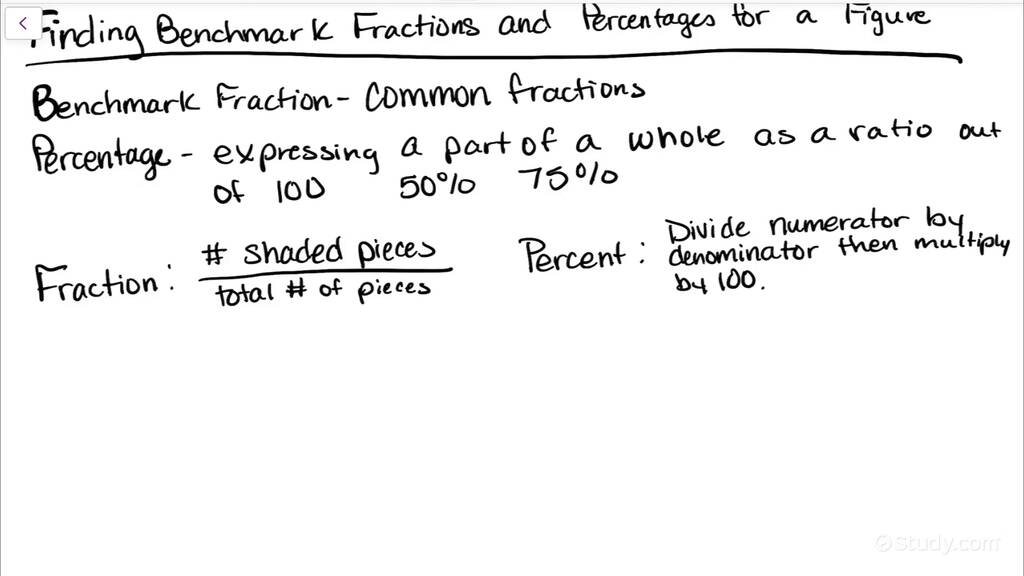 Finding Benchmark Fractions and Percentages for a Figure
Benchmark Fraction - Common fractions
Percentage - expressing a part of a whole as a ratio out
of 100 50% 75%
Fraction: # shaded pieces
total # of pieces
Percent: Divide numerator by
denominator then multiply
by 100.
Study.com